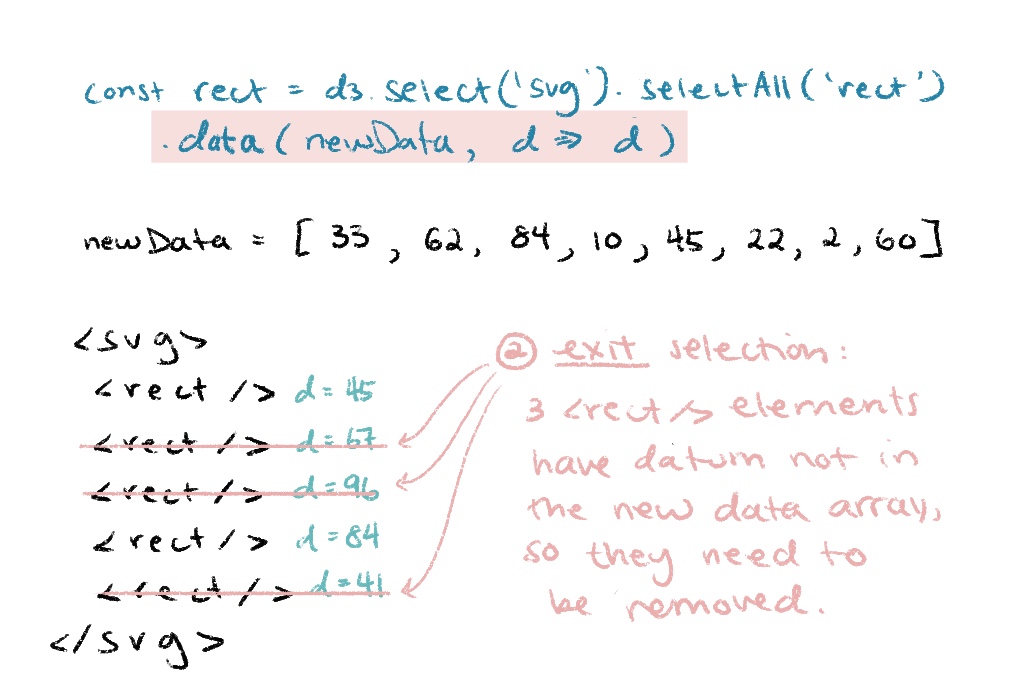 const rect = d3.select('svg').selectAll('rect')
.data(newData, d => d)
newData = [ 33, 62, 84, 10, 45, 22, 2, 60]
<svg>
<rect /> d=45
<rect /> d=67
<rect /> d=96
<rect /> d=84
<rect /> d=41
</svg>
② exit selection:
3 <rect/> elements
have datum not in
the new data array,
so they need to
be removed.